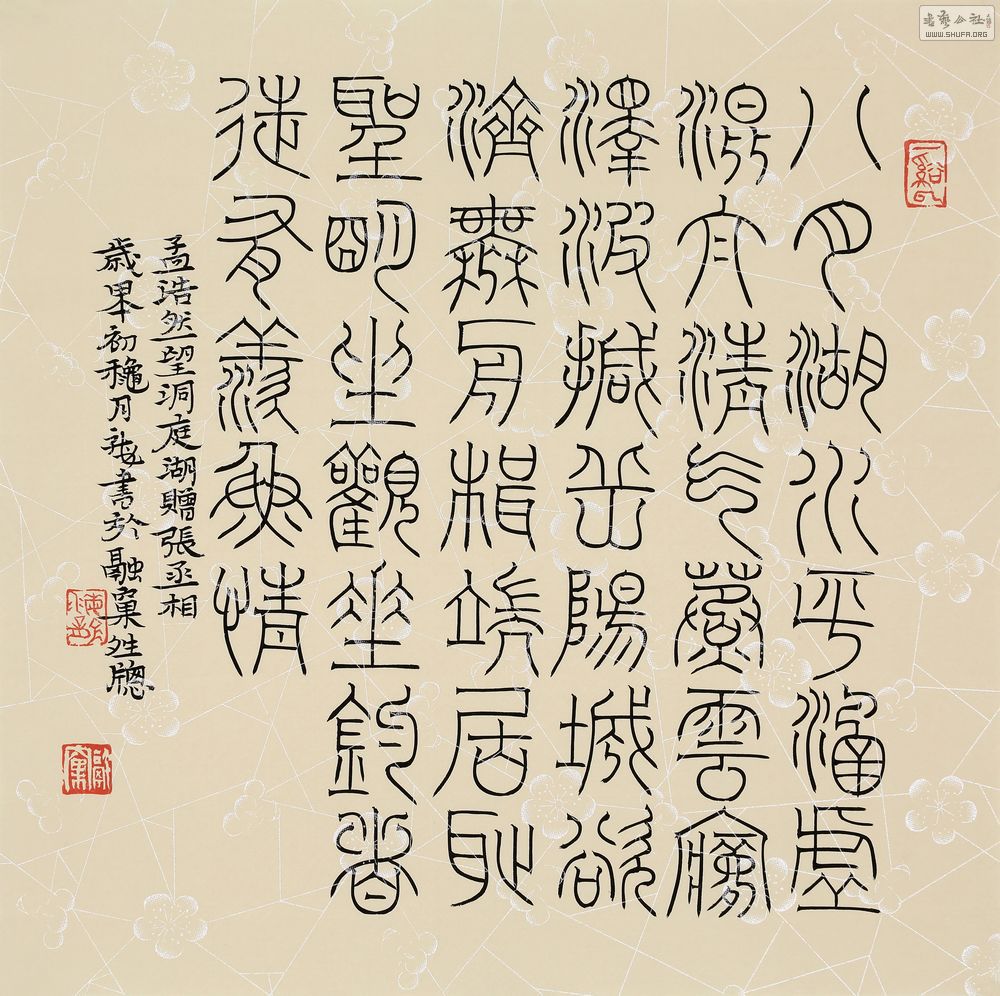 八月湖水平涵虛
混太清气蒸雲夢
澤波撼岳陽城欲
濟無舟楫端居恥
聖明坐觀垂釣者
徒有羨魚情
孟浩然望洞庭湖贈張丞相
歲初龝月書於融牕
書藝公社
WWW.SHUFA.ORG